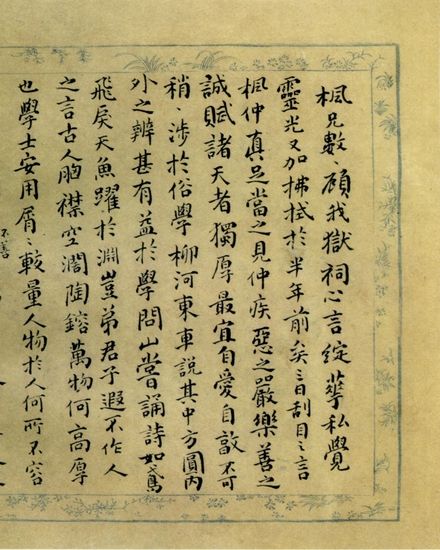 楓兄數〻顧我獄祠心言綻華私覺
靈光又加拂拭於半年前矣三日刮目之言
楓仲真足當之見仲疾惡之嚴樂善之
誠賦諸天者獨厚最宜自愛自不可
稍〻涉於俗學柳河東車說其中方圓內
外之辨甚有益於學問山嘗誦詩如鳶
飛戾天魚躍於淵豈弟君子遐不作人
之言古人胸襟空濶陶鎔萬物何高厚
也學士安用屑〻較量人物於人何所不容
不善